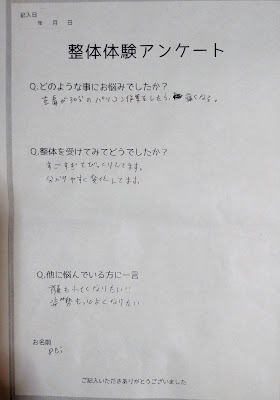 記入日
年 月 日
整体体験アンケート
Q.どのような事にお悩みでしたか？
左肩が30分のパソコン作業をしたら、痛くなる。
Q.整体を受けてみてどうでしたか？
すごすぎてびっくりしてます。
分かりやすく変化してます。
Q.他に悩んでいる方に一言
顔も小さくなりたい!!
姿勢もっとよくなりたい
お名前
ご記入いただきありがとうございました